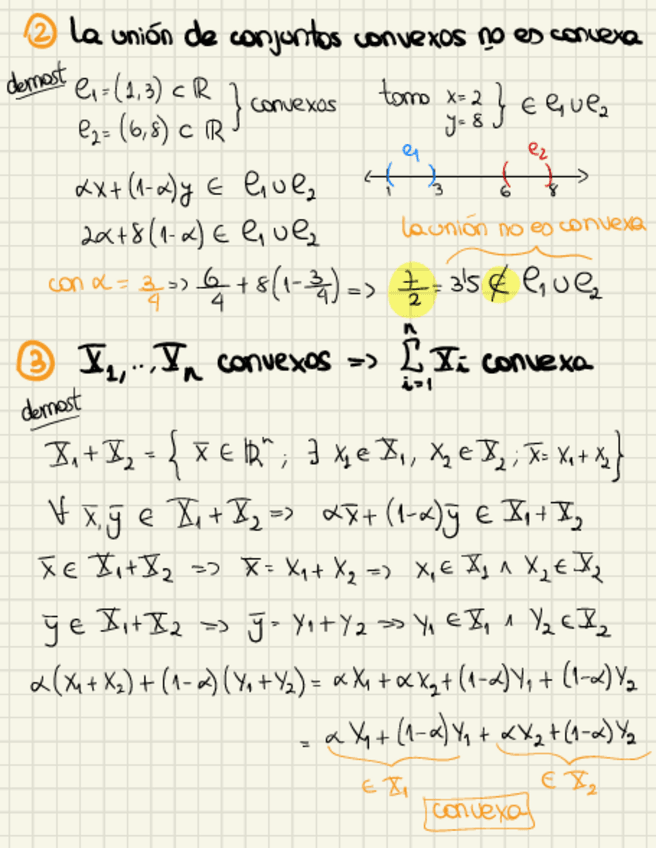 ② La unión de conjuntos convexos no es convexa
demost
e₁=(1,3) ⊂ ℝ
e₂=(6,8) ⊂ ℝ } convexos
tomo x=2
y=8 } ∈ e₁∪e₂
αx+(1-α)y ∈ e₁∪e₂
e₁ e₂
1 3 6 8
2α+8(1-α) ∈ e₁∪e₂
la unión no es convexa
con α = 3/4 => 6/4 + 8(1-3/4) => 7/2 = 3'5 ∉ e₁∪e₂
③ X₁,..,Xₙ convexos => ∑ⁿᵢ₌₁ Xᵢ convexa
demost
X₁+X₂ = { x̄ ∈ ℝⁿ ; ∃ x₁∈X₁, x₂∈X₂ ; x̄= x₁+x₂}
∀ x̄,ȳ ∈ X₁+X₂ => αx̄+(1-α)ȳ ∈ X₁+X₂
x̄ ∈ X₁+X₂ => x̄= x₁+x₂ => x₁∈X₁ ∧ x₂∈X₂
ȳ ∈ X₁+X₂ => ȳ= y₁+y₂ => y₁∈X₁ ∧ y₂∈X₂
α(x₁+x₂)+(1-α)(y₁+y₂) = αx₁+αx₂+(1-α)y₁+(1-α)y₂
= αx₁+(1-α)y₁ + αx₂+(1-α)y₂
∈ X₁ ∈ X₂
convexa